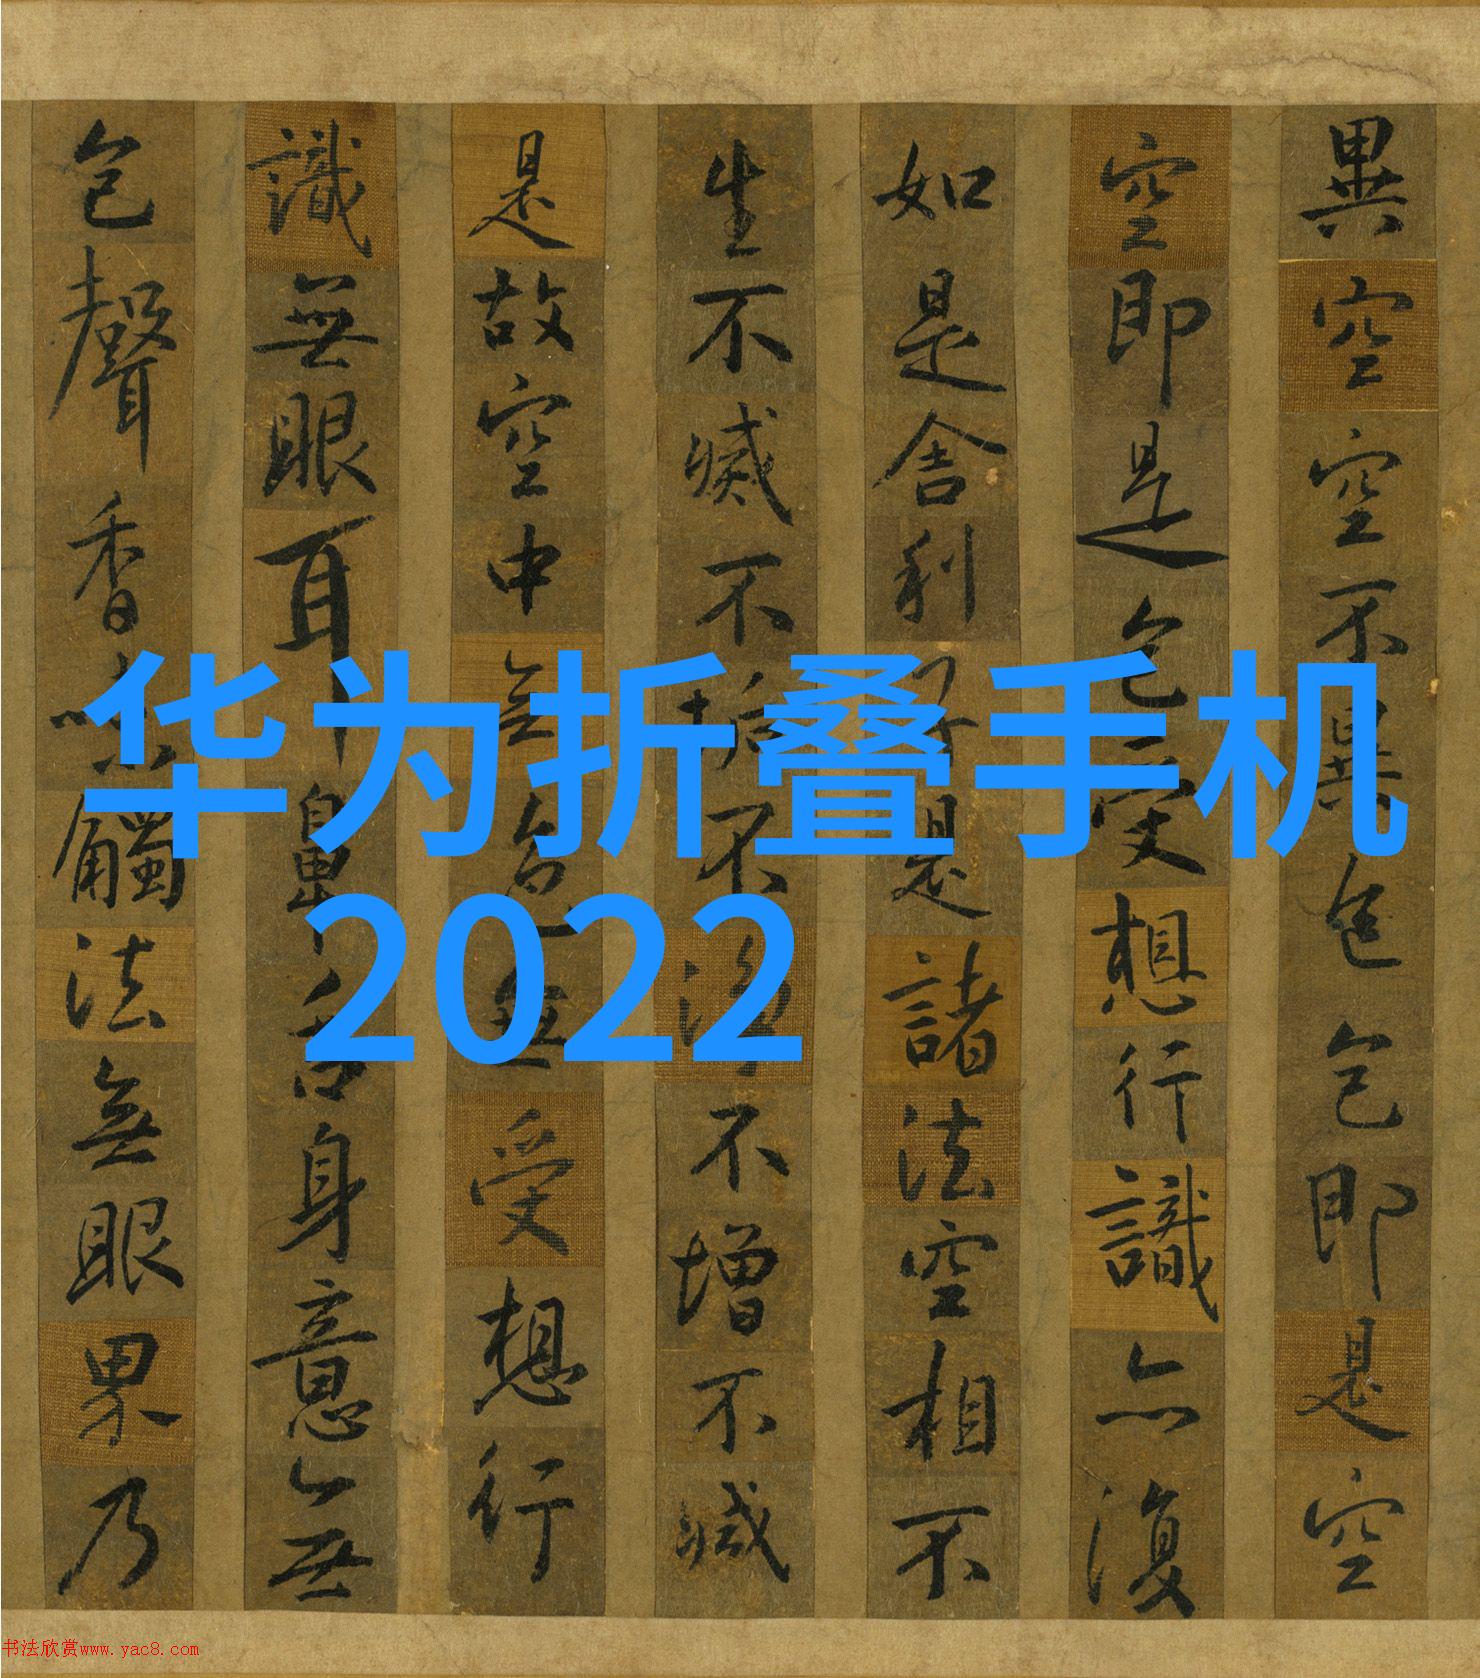 異空空不異色色即是空
空即是色受想行識亦復
如是舍利子是諸法空相不
生不滅不垢不淨不增不減
是故空中無色無受想行
識無眼耳鼻舌身意無
色聲香味觸法無眼界乃
华为折叠手机
2022
书法欣赏www.yac8.com